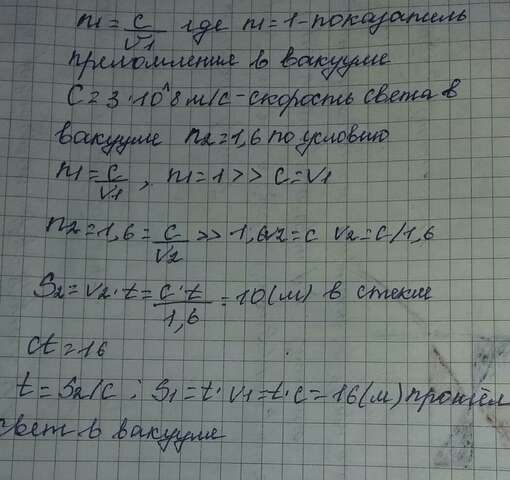 n1 = c/v1 где n1 = 1 - показатель
преломление в вакууме
C = 3·10^8 м/с - скорость света в
вакууме n2 = 1,6 по условию
n1 = c/v1, n1 = 1 >> c = v1
n2 = 1,6 = c/v2 >> 1,6v2 = c v2 = c/1,6
S2 = v2·t = c·t/1,6 = 10(м) в стекле
ct = 16
t = S2/c ; S1 = t·v1 = t·c = 16(м) прошёл
свет в вакууме